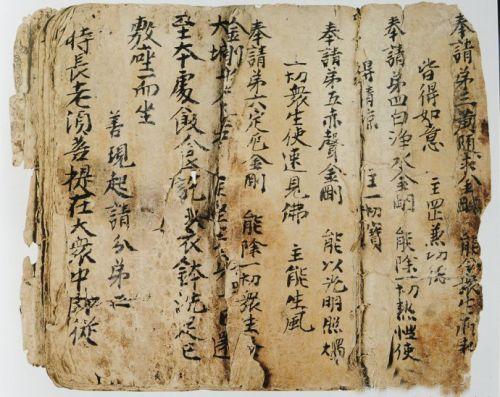 奉請第三黃隨求金剛 能令眾生所求
皆得如意 主 功德
奉請第四白淨水金剛 能除一切熱惱使
得清涼 主一切寶
奉請第五赤聲金剛 能以光明照燭
一切眾生使速見佛 主能生風
奉請第六定厄金剛 能除一切眾生
金剛
大城
至本處飯食訖收衣鉢洗足已
敷座而坐
善現起請分第二
時長老須菩提在大眾中即從